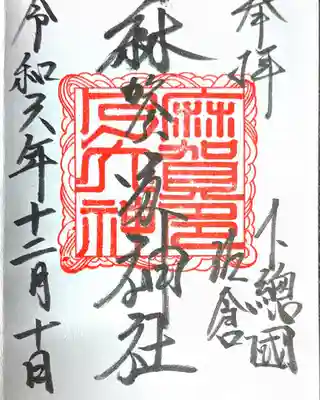 奉拝
下總國
佐倉
麻賀多神社
令和六年十二月十日